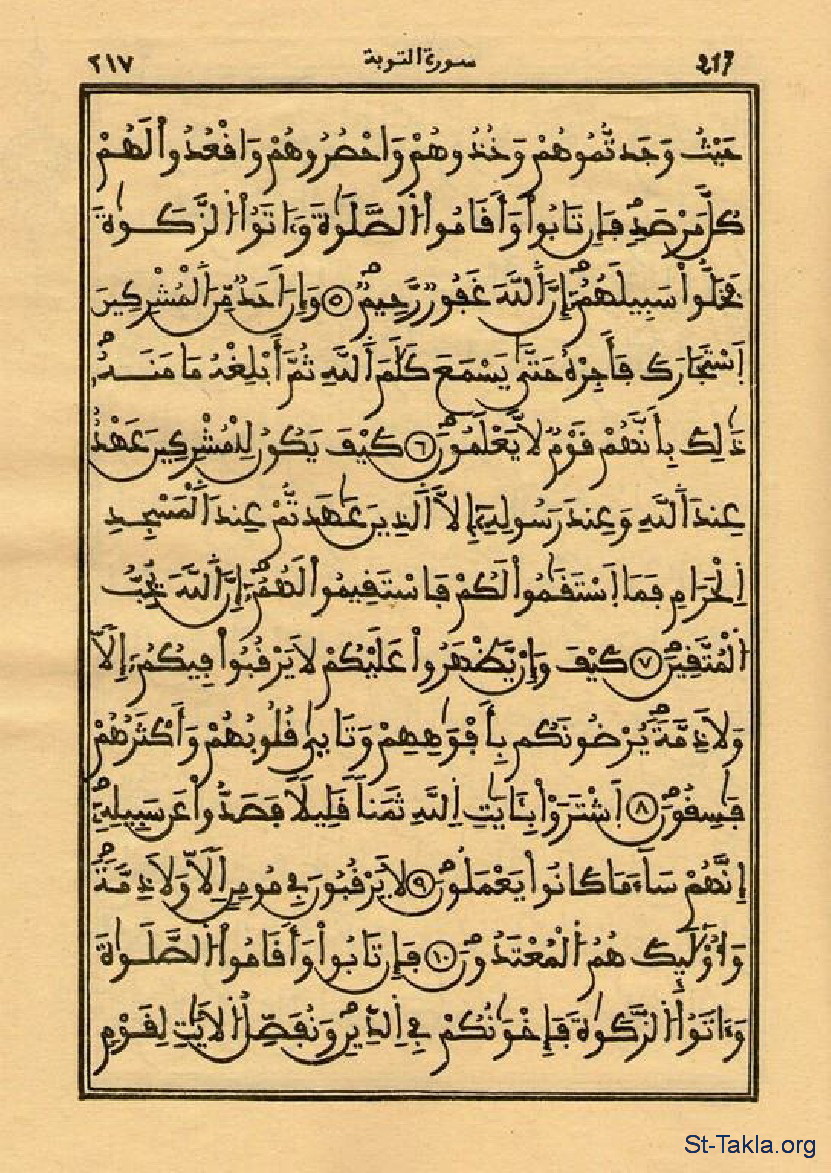 ٢١٧ سورة التوبة 217
حَيْثُ وَجَدتُّمُوهُمْ وَخُذُوهُمْ وَاحْصُرُوهُمْ وَاقْعُدُواْ لَهُمْ
كُلَّ مَرْصَدٍ فَإِن تَابُواْ وَأَقَامُواْ الصَّلَوٰةَ وَءَاتَوُاْ الزَّكَوٰةَ
فَخَلُّواْ سَبِيلَهُمْ إِنَّ اَللَّهَ غَفُورٌ رَّحِيمٌ ٥ وَإِنْ أَحَدٌ مِّنَ اَلْمُشْرِكِينَ
اَسْتَجَارَكَ فَأَجِرْهُ حَتَّىٰ يَسْمَعَ كَلَٰمَ اَللَّهِ ثُمَّ أَبْلِغْهُ مَامَنَهُ
ذَٰلِكَ بِأَنَّهُمْ قَوْمٌ لَّا يَعْلَمُونَ ٦ كَيْفَ يَكُونُ لِلْمُشْرِكِينَ عَهْدٌ
عِندَ اَللَّهِ وَعِندَ رَسُولِهِ إِلَّا اَلَّذِينَ عَٰهَدتُّمْ عِندَ اَلْمَسْجِدِ
اِلْحَرَامِ فَمَا اَسْتَقَٰمُواْ لَكُمْ فَاسْتَقِيمُواْ لَهُمْ إِنَّ اَللَّهَ يُحِبُّ
اُلْمُتَّقِينَ ٧ كَيْفَ وَإِنْ يَّظْهَرُواْ عَلَيْكُمْ لَا يَرْقُبُواْ فِيكُمْ إِلّاً
وَلَا ذِمَّةً يُرْضُونَكُم بِأَفْوَٰهِهِمْ وَتَابِىٰ قُلُوبُهُمْ وَأَكْثَرُهُمْ
فَٰسِقُونَ ٨ اَشْتَرَوْاْ بِـَٔايَٰتِ اِللَّهِ ثَمَناً قَلِيلاً فَصَدُّواْ عَن سَبِيلِهِ
إِنَّهُمْ سَآءَ مَا كَانُواْ يَعْمَلُونَ ٩ لَا يَرْقُبُونَ فِي مُومِنٍ إِلّاً وَلَا ذِمَّةً
وَأُوْلَٰئِكَ هُمُ اُلْمُعْتَدُونَ ١٠ فَإِن تَابُواْ وَأَقَامُواْ الصَّلَوٰةَ
وَءَاتَوُاْ الزَّكَوٰةَ فَإِخْوَٰنُكُمْ فِي اِلدِّينِ وَنُفَصِّلُ اُلْأَيَٰتِ لِقَوْمٍ
St-Takla.org